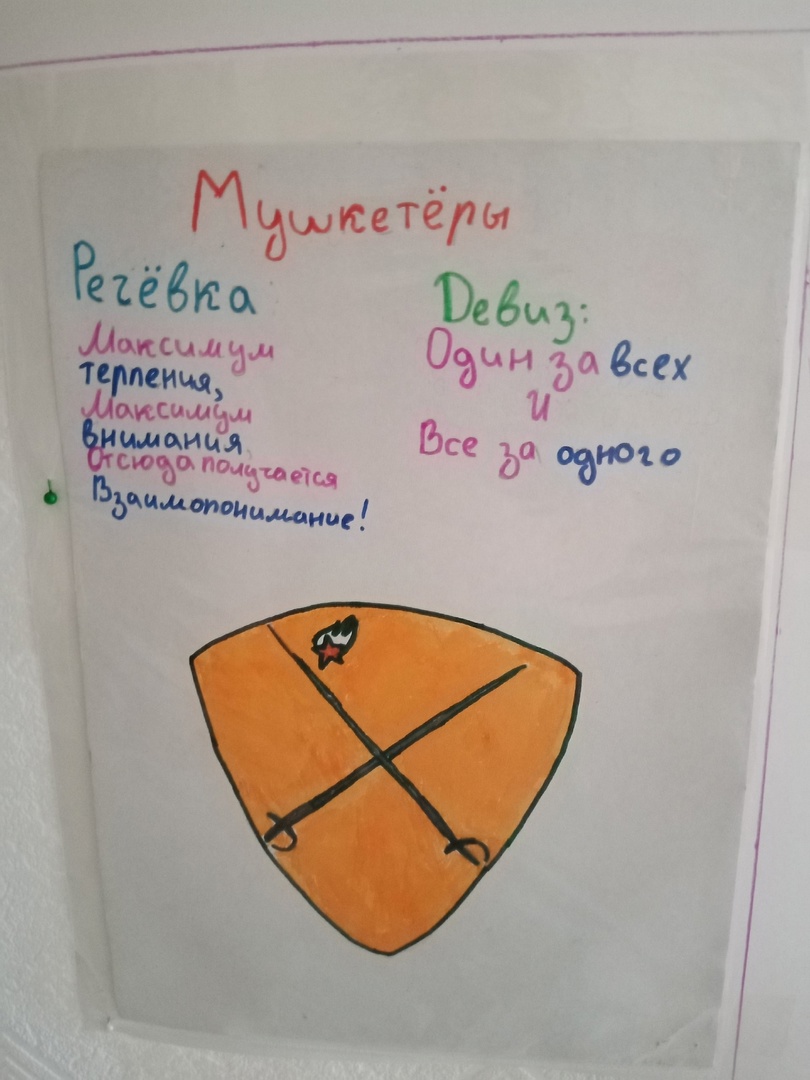 Мушкетёры
Речёвка
Максимум
терпения,
Максимум
внимания,
Отсюда получается
Взаимопонимание!
Девиз:
Один за всех
и
Все за одного